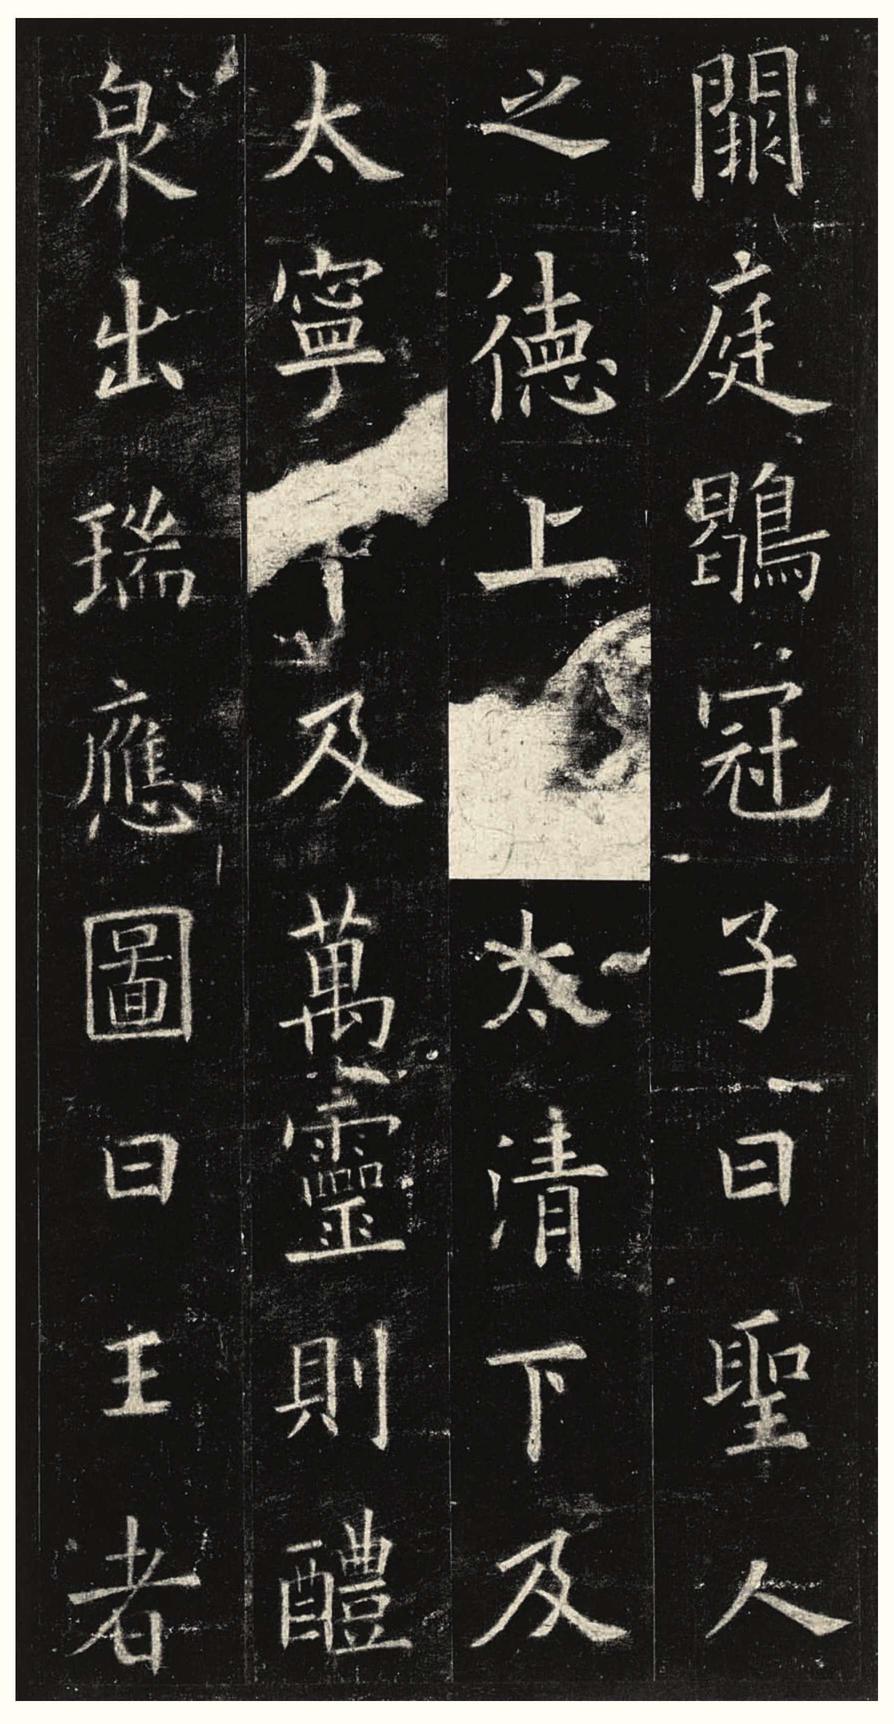 闕庭鶡冠子曰聖人
之德上太清下及
太寧下及萬靈則醴
泉出瑞應圖曰王者